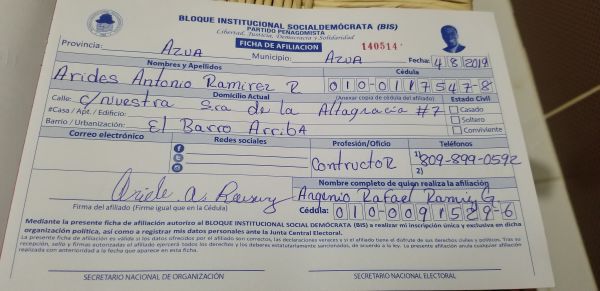 BLOQUE INSTITUCIONAL SOCIALDEMÓCRATA (BIS)
PARTIDO PEÑAGOMISTA
Libertad, Justicia, Democracia y Solidaridad
FICHA DE AFILIACION 140514
Provincia: AZUA Municipio: AZUA Fecha: 4/8/2019
Nombres y Apellidos Cédula
Arides Antonio Ramirez R 010-0117547-8
Domicilio Actual (Anexar copia de cédula del afiliado) Estado Civil
Calle: c/nuestra Sra de la Altagracia #7 Casado
#Casa / Apt. / Edificio: Soltero
Barrio / Urbanización: El Barro Arriba Conviviente
Correo electrónico Redes sociales Profesión/Oficio Teléfonos
Contructor 1) 809-899-0592
2)
Nombre completo de quien realiza la afiliación
Angenio Rafael Ramirez G.
Firma del afiliado (Firme igual que en la Cédula) Cédula: 010-0091529-6
Mediante la presente ficha de afiliación autorizo al BLOQUE INSTITUCIONAL SOCIAL DEMÓCRATA (BIS) a realizar mi inscripción única y exclusiva en dicha
organización política, así como a registrar mis datos personales ante la Junta Central Electoral.
La presente ficha de afiliación es válida si los datos ofrecidos por el afiliado son correctos, las declaraciones veraces y si el afiliado tiene el disfrute de sus derechos civiles y políticos. Tras su
recepción, sello y firmas autorizadas el afiliado ejercerá todos los derechos y los deberes estatutariamente sancionados, de acuerdo a la ley. La presente afiliación anula cualquier afiliación
realizada con anterioridad a la fecha que aparece en esta ficha.
SECRETARIO NACIONAL DE ORGANIZACIÓN SECRETARIO NACIONAL ELECTORAL